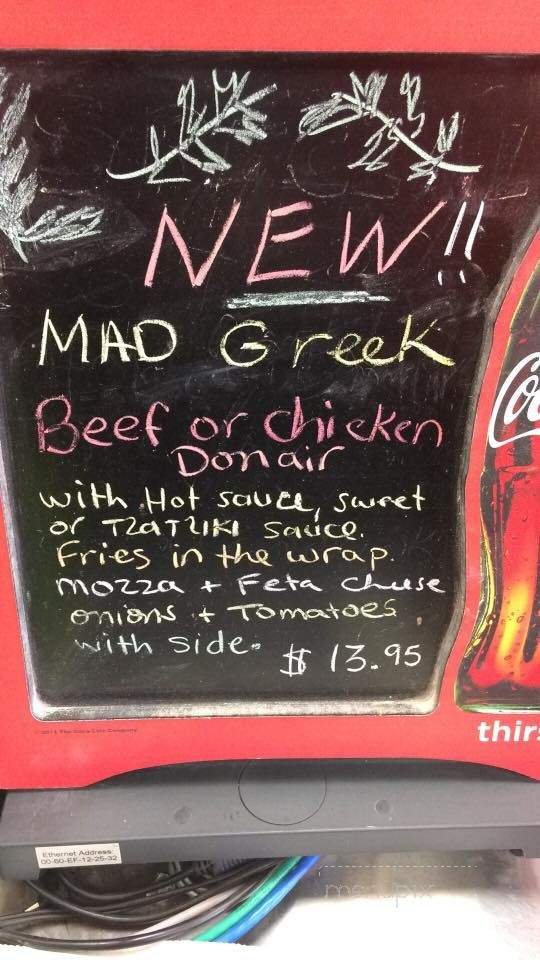 NEW!!
MAD Greek
Beef or chicken
Donair
with Hot sauce, sweet
or TzaTziki sauce.
Fries in the wrap.
mozza + Feta cheese
onions + Tomatoes
with side. $13.95
thir
Ethernet Address:
00-60-EF-12-25-32
menupix